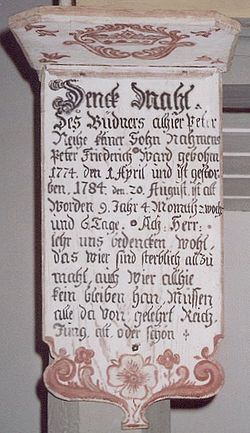 Denck Mahl.
Des Büdners alhier Peter
Reihe keiner Sohn Nahmens
Peter Friederich Ward gebohrn
1774. den 1. April und ist gestor
ben. 1784. den 20. August. ist alt
Worden 9. Jahr 4. Monat 2 woch
und 6. Tage. Ach. Herr.
lehr uns bedencken wohl.
das wier sind sterblich all zu
mahl, auch wier alhie
kein bleiben han, Müssen
alle da von, gelehrt, Reich,
Jung, alt, oder schön